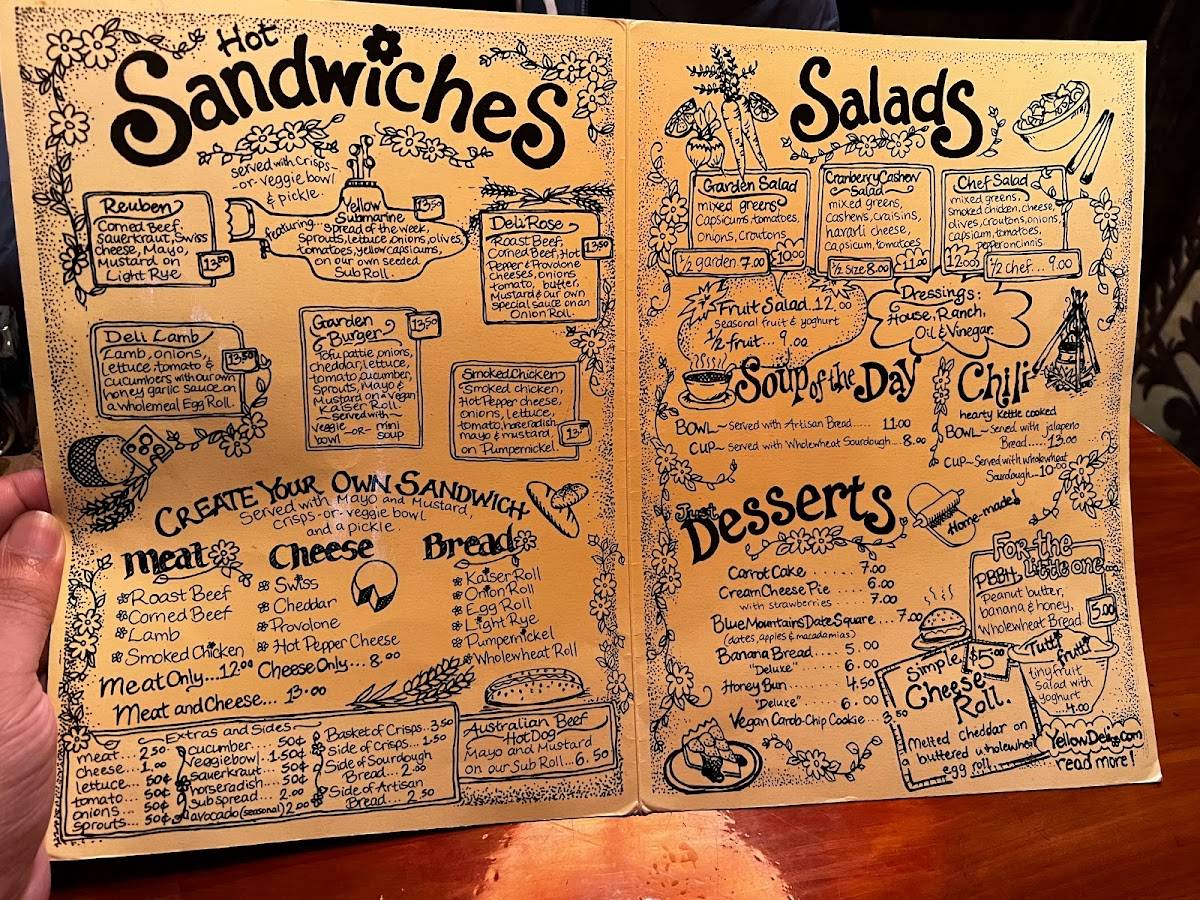 Hot
Sandwiches
served with crisps-
-or-veggie bowl
& pickle.
Reuben
Corned Beef,
Sauerkraut, Swiss
cheese, Mayo,
Mustard on
Light Rye
13.50
Yellow
Submarine
13.50
featuring... spread of the week,
sprouts, lettuce, onions, olives,
tomatoes, yellow capsicums,
on our own seeded
Sub Roll.
Deli Rose
Roast Beef,
Corned Beef, Hot
Pepper & Provolone
cheeses, onions
tomato, butter,
Mustard & our own
special sauce on an
Onion Roll.
13.50
Deli Lamb
Lamb, onions,
lettuce, tomato &
cucumbers with our own
honey garlic sauce on
a wholemeal Egg Roll.
13.50
Garden
Burger
13.50
Tofu pattie, onions,
cheddar, lettuce,
tomato, cucumber,
sprouts, Mayo &
Mustard on a Vegan
Kaiser Roll.
-served with-
veggie -OR- mini
bowl soup
Smoked Chicken
Smoked chicken,
Hot Pepper cheese,
onions, lettuce,
tomato, horseradish
mayo & mustard,
on Pumpernickel.
13.-
Create Your Own Sandwich
Served with Mayo and Mustard,
crisps-or-veggie bowl
and a pickle.
Meat
Roast Beef
Corned Beef
Lamb
Smoked Chicken
Cheese
Swiss
Cheddar
Provolone
Hot Pepper Cheese
Bread
Kaiser Roll
Onion Roll
Egg Roll
Light Rye
Pumpernickel
Wholewheat Roll
Meat Only...12.00 Cheese Only... 8.00
Meat and Cheese... 13.00
Extras and Sides
meat... 2.50
cheese... 1.00
lettuce... 50¢
tomato... 50¢
onions... 50¢
sprouts... 50¢
cucumber... 50¢
veggie bowl. 1.50¢
sauerkraut... 50¢
horseradish... 50¢
sub spread... 2.00
avocado (seasonal) 2.00
Basket of Crisps. 3.50
Side of Crisps... 1.50
Side of Sourdough
Bread... 2.00
Side of Artisan
Bread... 2.50
Australian Beef
Hot Dog
Mayo and Mustard
on our Sub Roll... 6.50
Salads
Garden Salad
mixed greens
Capsicums, tomatoes,
onions, croutons
1/2 garden 7.00 10.00
Cranberry Cashew
Salad
mixed greens,
cashews, craisins,
havarti cheese,
capsicum, tomatoes
1/2 size 8.00 11.00
Chef Salad
mixed greens,
smoked chicken, cheese,
olives, croutons, onions,
capsicum, tomatoes,
pepperoncinnis.
12.00 1/2 chef... 9.00
Fruit Salad. 12.00
seasonal fruit & yoghurt
1/2 fruit... 9.00
Dressings:
House, Ranch,
Oil & Vinegar
Soup of the Day
Bowl~ Served with Artisan Bread..... 11.00
Cup~ Served with Wholewheat Sourdough... 8.00
Chili
hearty kettle cooked
Bowl~ served with jalapeno
Bread.... 13.00
Cup~ Served with wholewheat
Sourdough~ 10.00
Just
Desserts
Home-made!
Carrot Cake . . . . . 7.00
Cream Cheese Pie . . . . 6.00
with strawberries . . . . 7.00
Blue Mountains Date Square.... 7.00
(dates, apples & macadamias)
Banana Bread . . . . 5.00
"Deluxe" . . . . . 6.00
Honey Bun . . . . . . 4.50
"Deluxe" . . . . . 6.00
Vegan Carob-Chip Cookie... 3.50
For the
little one...
PBBH
Peanut butter,
banana & honey,
Wholewheat Bread
5.00
Simple
Cheese
Roll.
$5.00
Melted cheddar on
buttered wholewheat
egg roll.
Tutti
fruiti
tiny fruit
salad with
yoghurt
...4.00
YellowDeli.com
read more!